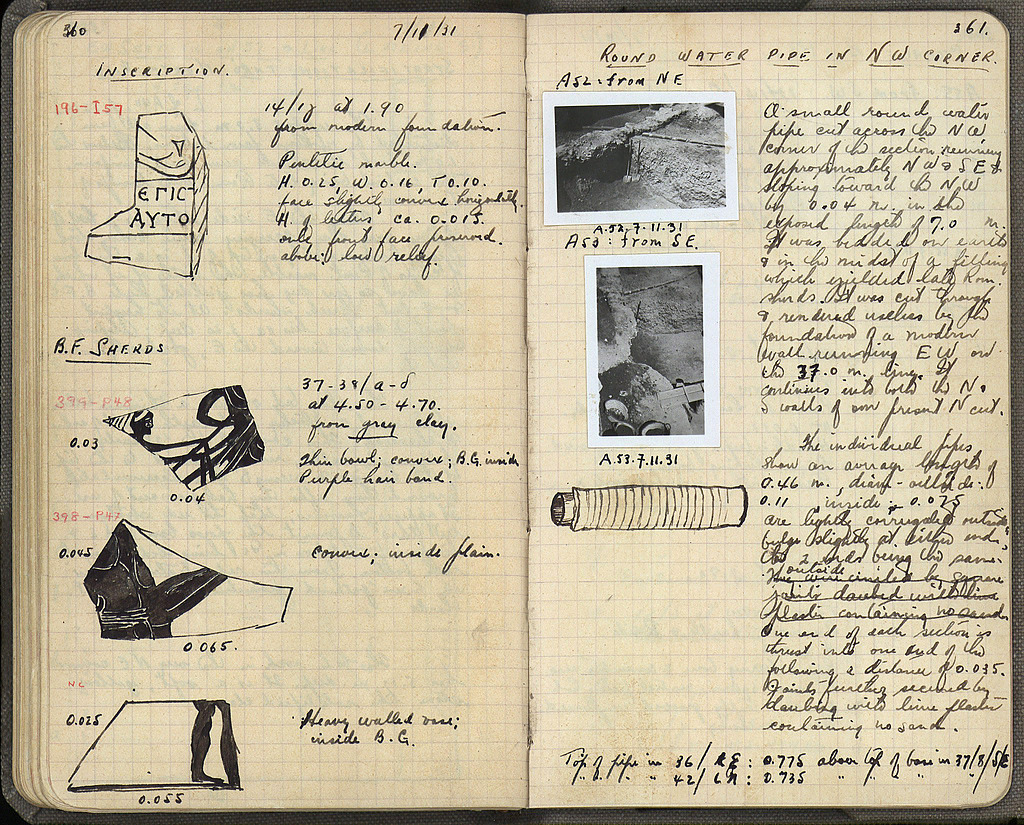 360
7/11/31
INSCRIPTION.
196-I57
14/ΙΖ at 1.90
from modern foundation.
Pentelic marble.
H. 0.25, W. 0.16, T 0.10.
face slightly convex horizontally.
H. of letters, ca. 0.015.
only front face preserved.
above: low relief.
ΕΠΙΣ
ΑΥΤΟ
B.F. SHERDS
399-P48
37-38/
at 4.50 - 4.70.
from gray clay.
Thin bowl; convex; B.G. inside
Purple hair band.
0.03
0.04
398-P47
0.045
convex; inside plain.
0.065.
NC
0.025
Heavy walled vase;
inside B.G.
0.055
361.
ROUND WATER PIPE IN NW CORNER.
A52: from NE
A.52.7.11.31
A53: from SE.
A.53.7.11.31
A small round water
pipe cut across the NW
corner of the section running
approximately NW & SE &
sloping toward the NW
by 0.04 m. in the
exposed length of 7.0 m.
It was bedded on earth
& in the midst of a filling
which yielded late Rom.
sherds. It was cut through
& rendered useless by the
foundation of a modern
wall running EW on
the 37.0 m. line. It
continues into both the N &
S walls of our present N cut.
The individual pipes
show an average length of
0.46 m., diam - outside:
0.11 inside: 0.075
are lightly corrugated outside
bulge slightly at either end,
the 2 ends being the same
outside.
joints daubed with lime
plaster containing no sand
One end of each section is
thrust into one end of the
following a distance of 0.035.
Joints further secured by
daubing with lime plaster
containing no sand.
Top of pipe in 36/ : 0.775 above top of base in 37/
" " " 42/ : 0.735 " " " "